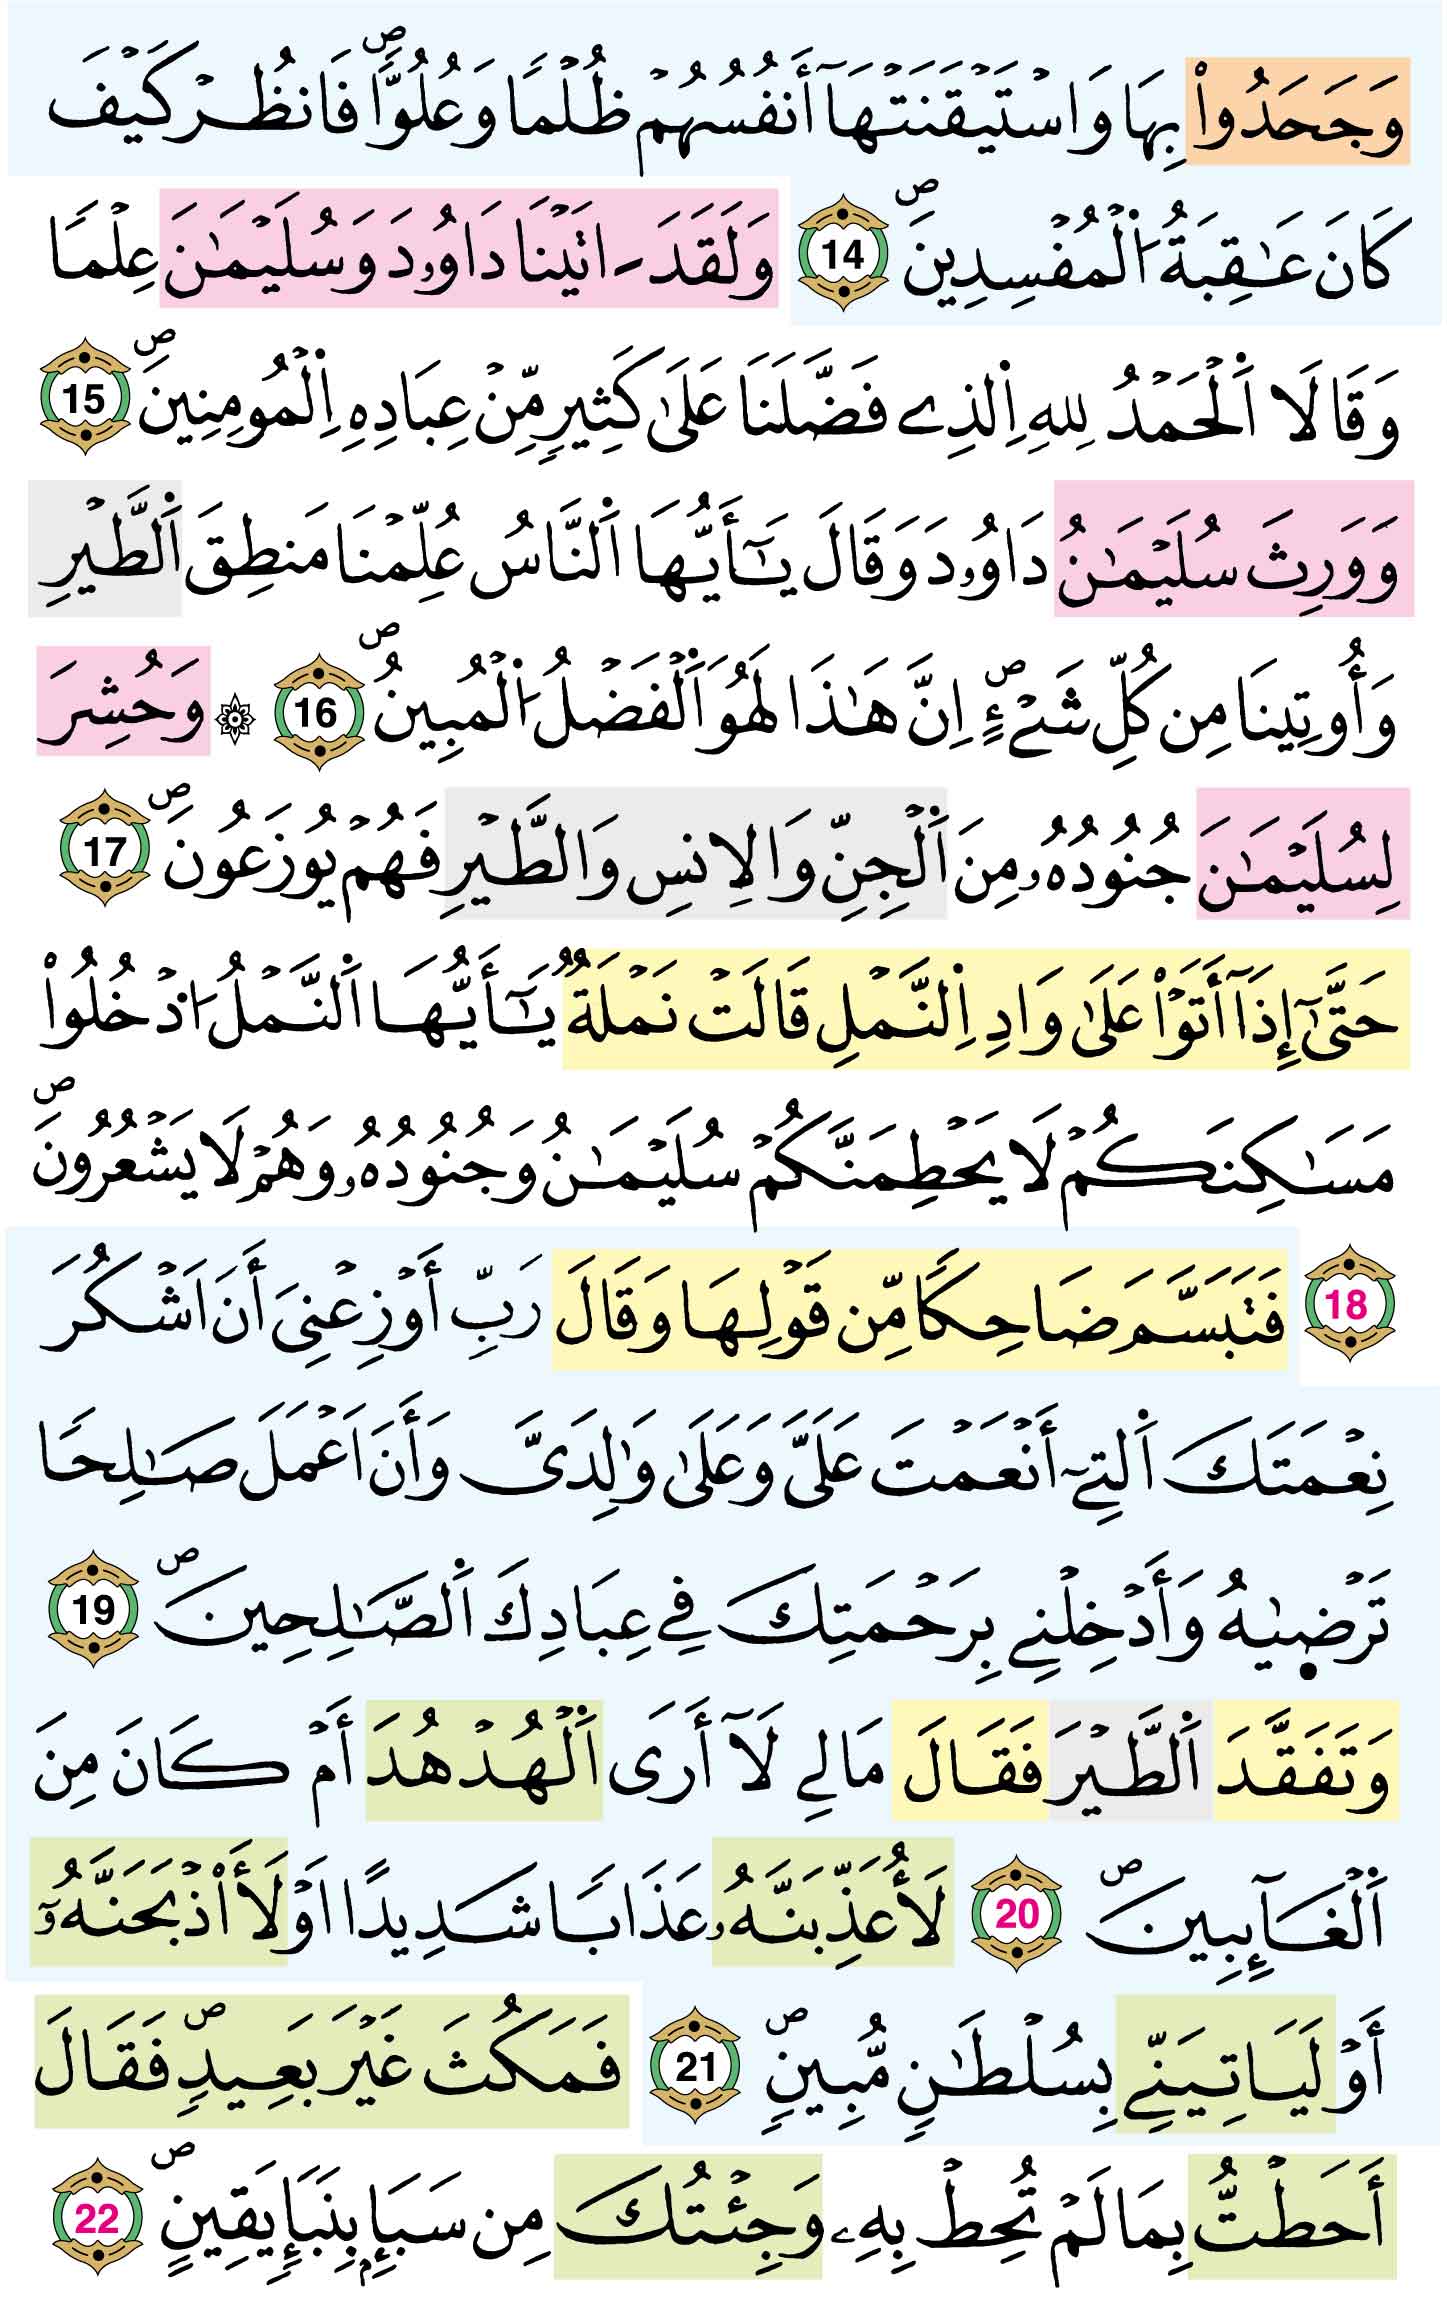 وَجَحَدُواْ بِهَا وَاسْتَيْقَنَتْهَآ أَنفُسُهُمْ ظُلْمًا وَعُلُوًّاۖ فَانظُرْ كَيْفَ
كَانَ عَٰقِبَةُ اُ۬لْمُفْسِدِينَۖ 14 وَلَقَدَ ـ اتَيْنَا دَاوُۥدَ وَسُلَيْمَٰنَ عِلْمًا
وَقَالَا اَ۬لْحَمْدُ لِلهِ اِ۬لذِے فَضَّلَنَا عَلَىٰ كَثِيرٍ مِّنْ عِبَادِهِ اِ۬لْمُومِنِينَۖ 15
وَوَرِثَ سُلَيْمَٰنُ دَاوُۥدَ وَقَالَ يَٰٓأَيُّهَا اَ۬لنَّاسُ عُلِّمْنَا مَنطِقَ اَ۬لطَّيْرِ
وَأُوتِينَا مِن كُلِّ شَےْءٍۖ اِنَّ هَٰذَا لَهُوَ اَ۬لْفَضْلُ اُ۬لْمُبِينُۖ 16 ۞ وَحُشِرَ
لِسُلَيْمَٰنَ جُنُودُهُۥ مِنَ اَ۬لْجِنِّ وَالِانسِ وَالطَّيْرِ فَهُمْ يُوزَعُونَۖ 17
حَتَّىٰٓ إِذَآ أَتَوْاْ عَلَىٰ وَادِ اِ۬لنَّمْلِ قَالَتْ نَمْلَةٌ يَٰٓأَيُّهَا اَ۬لنَّمْلُ اُ۟دْخُلُواْ
مَسَٰكِنَكُمْ لَا يَحْطِمَنَّكُمْ سُلَيْمَٰنُ وَجُنُودُهُۥ وَهُمْ لَا يَشْعُرُونَۖ
18 فَتَبَسَّمَ ضَاحِكًا مِّن قَوْلِهَا وَقَالَ رَبِّ أَوْزِعْنِيَ أَنَ اَشْكُرَ
نِعْمَتَكَ اَ۬لتِےٓ أَنْعَمْتَ عَلَيَّ وَعَلَىٰ وَٰلِدَيَّ وَأَنَ اَعْمَلَ صَٰلِحًا
تَرْضٜيٰهُ وَأَدْخِلْنِے بِرَحْمَتِكَ فِے عِبَادِكَ اَ۬لصَّٰلِحِينَۖ 19
وَتَفَقَّدَ اَ۬لطَّيْرَ فَقَالَ مَالِے لَآ أَرَى اَ۬لْهُدْهُدَ أَمْ كَانَ مِنَ
اَ۬لْغَآئِبِينَۖ 20 لَأُعَذِّبَنَّهُۥ عَذَابًا شَدِيدًا اَوْ لَأَاْذْبَحَنَّهُۥٓ
أَوْ لَيَاتِيَنِّے بِسُلْطَٰنٍ مُّبِينٍۖ 21 فَمَكُثَ غَيْرَ بَعِيدٍۖ فَقَالَ
أَحَطتُّ بِمَا لَمْ تُحِطْ بِهِۦ وَجِئْتُكَ مِن سَبَإِۢ بِنَبَإٍ يَقِينٍۖ 22